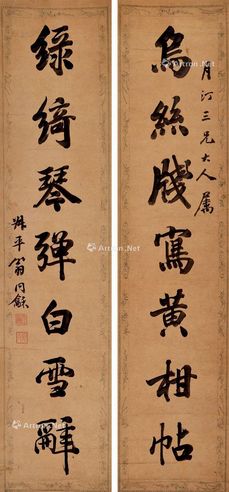 月汀三兄大人属
烏絲牋寫黃柑帖
綠綺琴彈白雪辭
叔平翁同龢
Artron.Net
Artron.Net